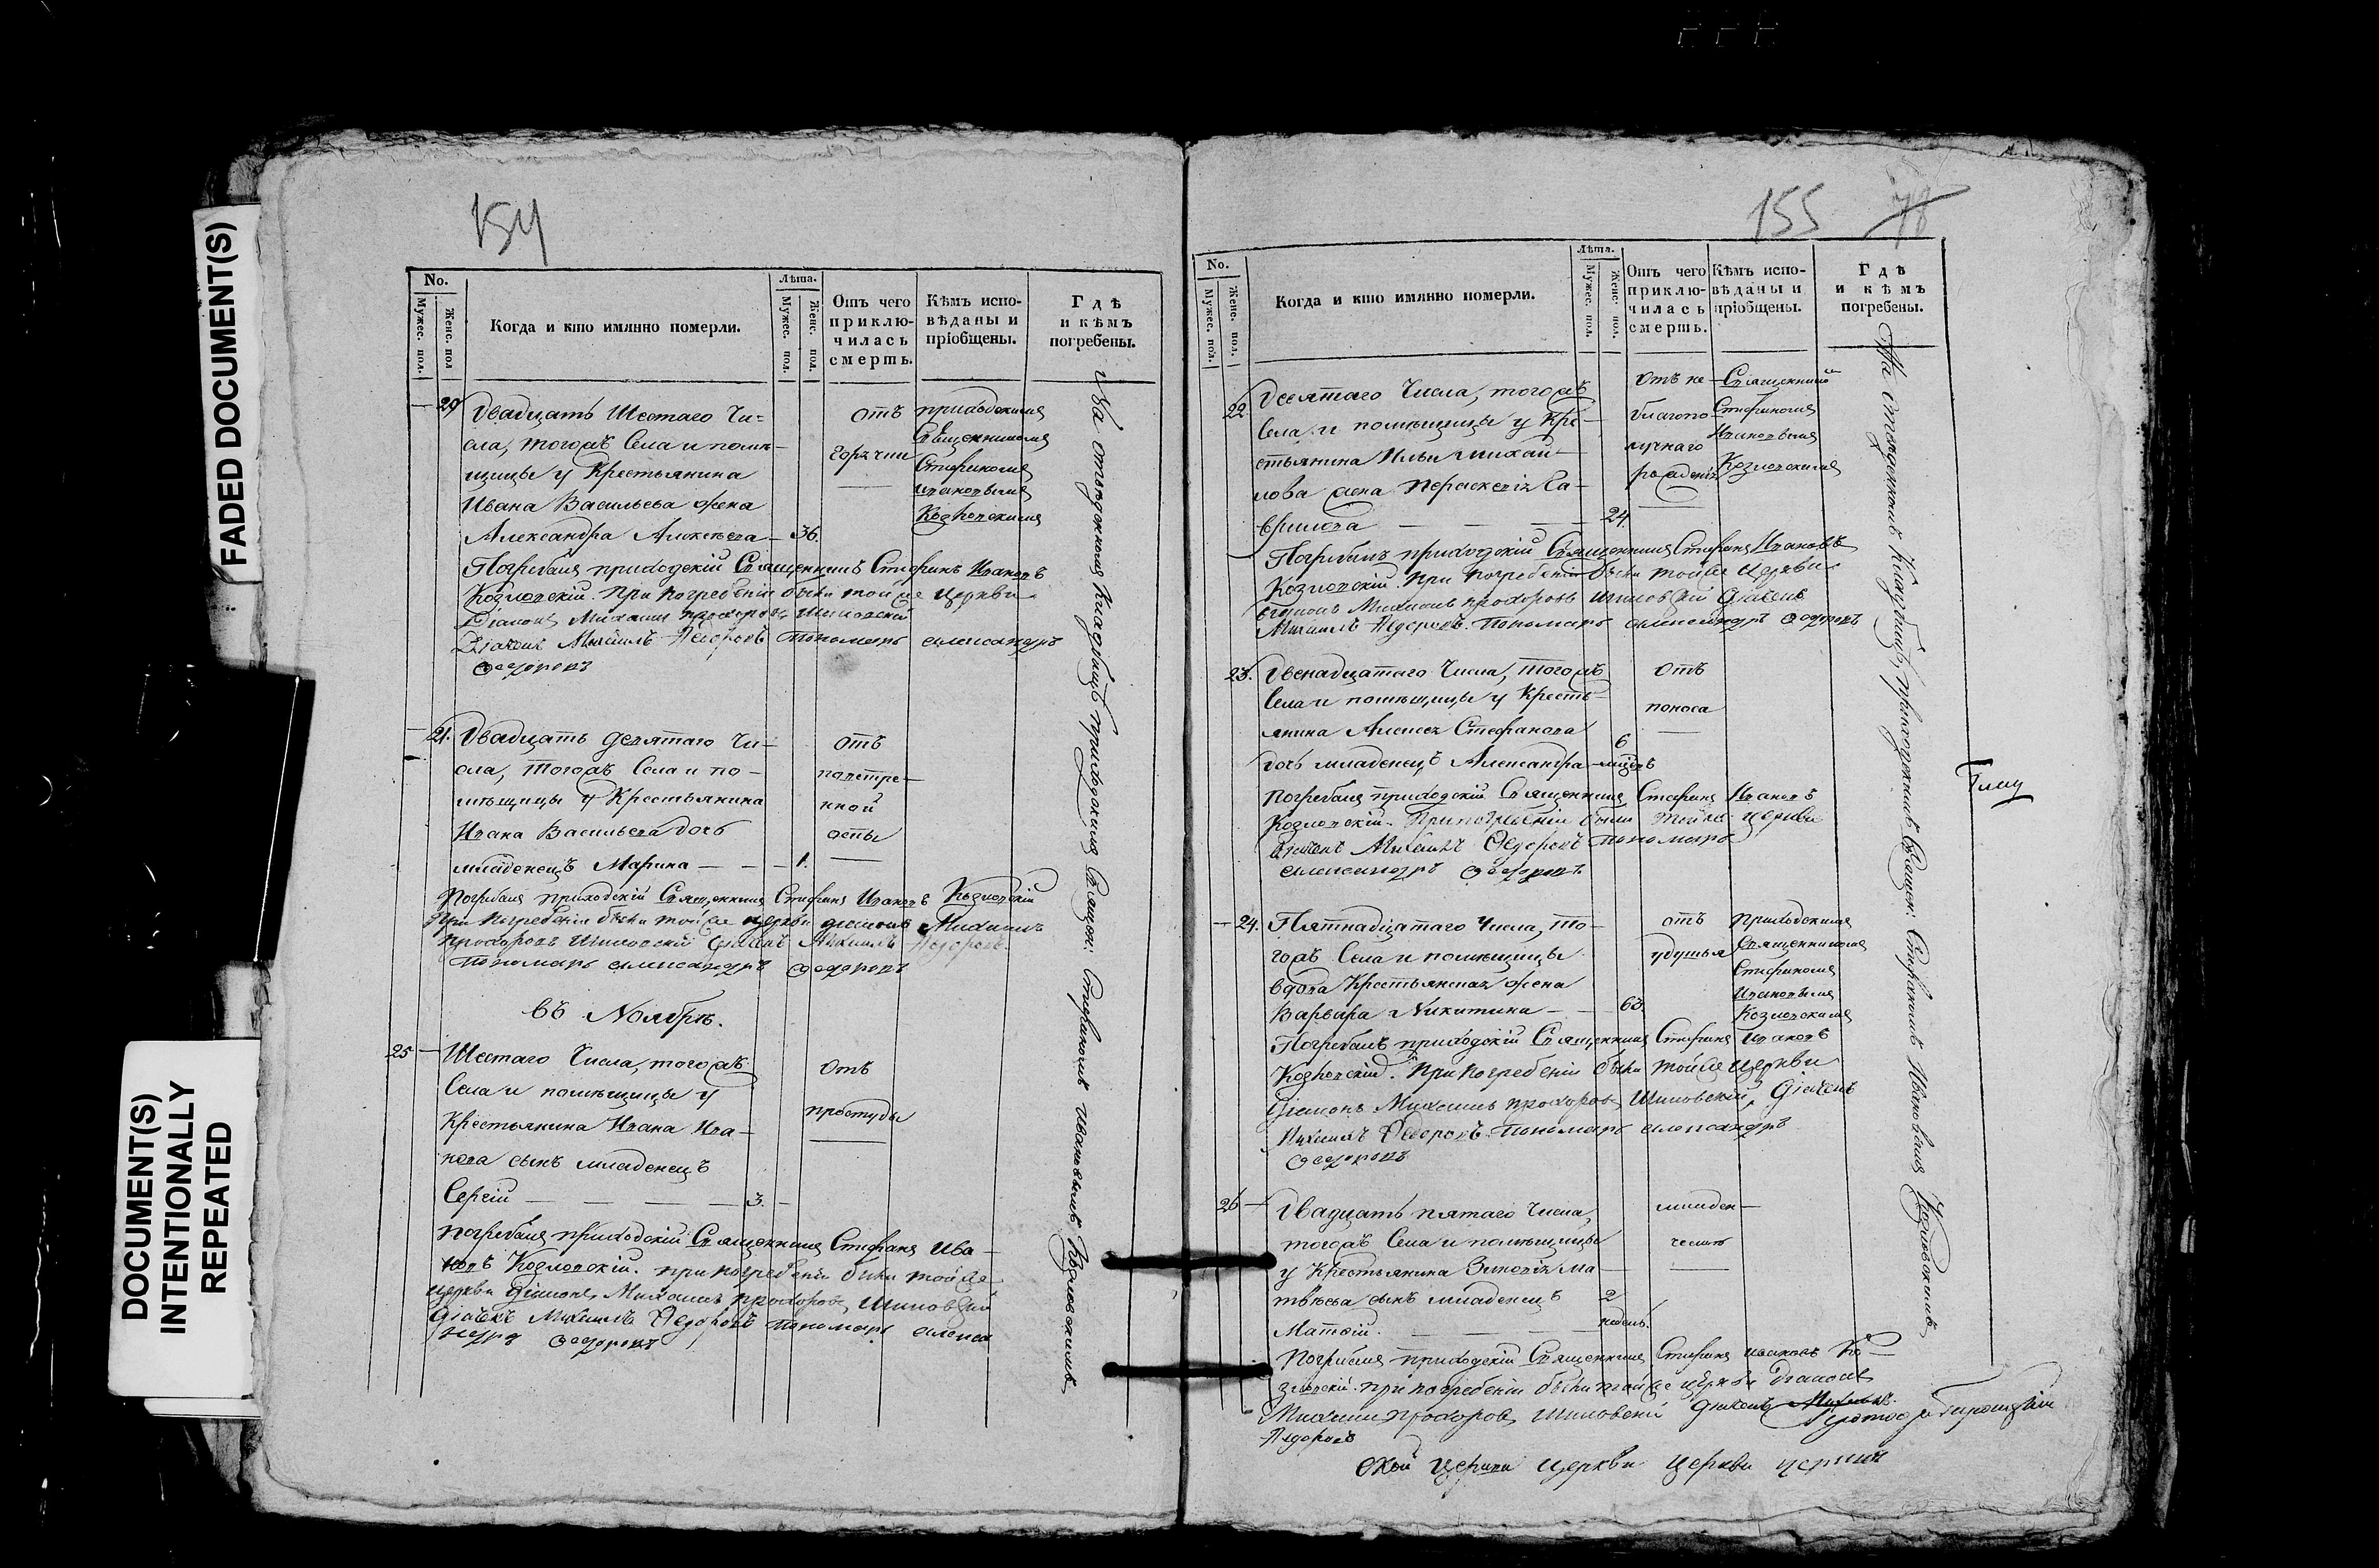 FADED DOCUMENT(S)
DOCUMENT(S)
INTENTIONALLY
REPEATED
154
No.
Мужес. пол.
Женс. пол
Когда и кто имянно померли.
Лѣта.
Мужес. пол.
Женс. пол.
Отъ чего
приклю-
чилась
смерть.
Кѣмъ испо-
вѣданы и
пріобщены.
Гдѣ
и кѣмъ
погребены.
— 20 Двадцать Шестаго Чи=
сла, тогожъ Села и помѣ-
щицы у Крестьянина
Ивана Васильева жена
Александра Алексѣева — 36.
отъ
горячки
приходскимъ
Священникомъ
Стефаномъ
Ивановымъ
Козловскимъ
Погребалъ приходскій Священникъ Стефанъ Ивановъ
Козловскій. При погребеніи были той же церкви
Діаконъ Михаилъ Прохоровъ Шиловскій
Дьячекъ Михаилъ Ѳедоровъ Пономарь Александръ
Ѳедоровъ
— 21. Двадцать девятаго Чи-
сла, тогожъ Села и по-
мѣщицы у Крестьянина
Ивана Васильева дочь
младенецъ Марина — — 1.
отъ
оспы
Погребалъ приходскій Священникъ Стефанъ Ивановъ Козловскій
При погребеніи были той же церкви діаконъ Михаилъ
Прохоровъ Шиловскій дьячекъ Михаилъ Ѳедоровъ.
Пономарь Александръ Ѳедоровъ
Въ Ноябрѣ.
25 — Шестаго Числа, тогожъ
Села и помѣщицы у
Крестьянина Ивана Ива-
нова сынъ младенецъ
Сергій — — — — 3. —
Отъ
простуды
Погребалъ приходскій Священникъ Стефанъ Ива-
новъ Козловскій. при погребеніи были той же
церкви Діаконъ Михаилъ Прохоровъ Шиловскій
дьячекъ Михаилъ Ѳедоровъ Пономарь Алекса
ндръ Ѳедоровъ
На отведенномъ Кладбищѣ приходскимъ Священ: Стефаномъ Ивановымъ Козловскимъ
155 78
No.
Мужес. пол.
Женс. пол.
Когда и кто имянно померли.
Лѣта.
Мужес. пол.
Женс. пол.
Отъ чего
приклю-
чилась
смерть.
Кѣмъ испо-
вѣданы и
пріобщены.
Гдѣ
и кѣмъ
погребены.
22. Десятаго Числа, тогожъ
Села и помѣщицы у Кре-
стьянина Ильи Михай-
лова жена Пераскевія Га-
врилова — — — 24.
Отъ не
благопо
лучнаго
Священникомъ
Стефаномъ
Ивановымъ
Козловскимъ
Погребалъ приходскій Священникъ Стефанъ Ивановъ
Козловскій. При погребеніи были той же Церкви
Діаконъ Михаилъ Прохоровъ Шиловскій Дьячекъ
Михаилъ Ѳедоровъ. Пономарь Александръ Ѳедоровъ
23. Двенадцатаго Числа, тогожъ
Села и помѣщицы у Кресть-
янина Алексея Стефанова
дочь младенецъ Александра
6
Отъ
поноса
Погребалъ приходскій Священникъ Стефанъ Ивановъ
Козловскій. При погребеніи были той же церкви
дьячекъ Михаилъ Ѳедоровъ Пономарь
Александръ Ѳедоровъ
— 24. Пятнадцатаго Числа, то-
гожъ Села и помѣщицы
вдова Крестьянская жена
Варвара Никитина — — 63.
отъ
удушья
Приходскимъ
Священникомъ
Стефаномъ
Ивановымъ
Козловскимъ
Погребалъ приходскій Священникъ Стефанъ Ивановъ
Козловскій. При погребеніи были той же Церкви
Діаконъ Михаилъ Прохоровъ Шиловскій, Дьячекъ
Михаилъ Ѳедоровъ. Пономарь Александръ
Ѳедоровъ
26 — Двадцать пятаго Числа,
тогожъ Села и помѣщицы
у Крестьянина Зиновія Ма-
твѣева сынъ младенецъ
Матѳій. — — —
2
недель.
младен-
ческой
Погребалъ приходскій Священникъ Стефанъ Ивановъ Ко-
зловскій. при погребеніи были той же церкви Діаконъ
Михаилъ Прохоровъ Шиловскій дьячекъ Михаилъ
Ѳедоровъ
ской церкви церкви церкви церкви
На отведенномъ Кладбищѣ, приходскимъ Священ: Стефаномъ Ивановымъ Козловскимъ